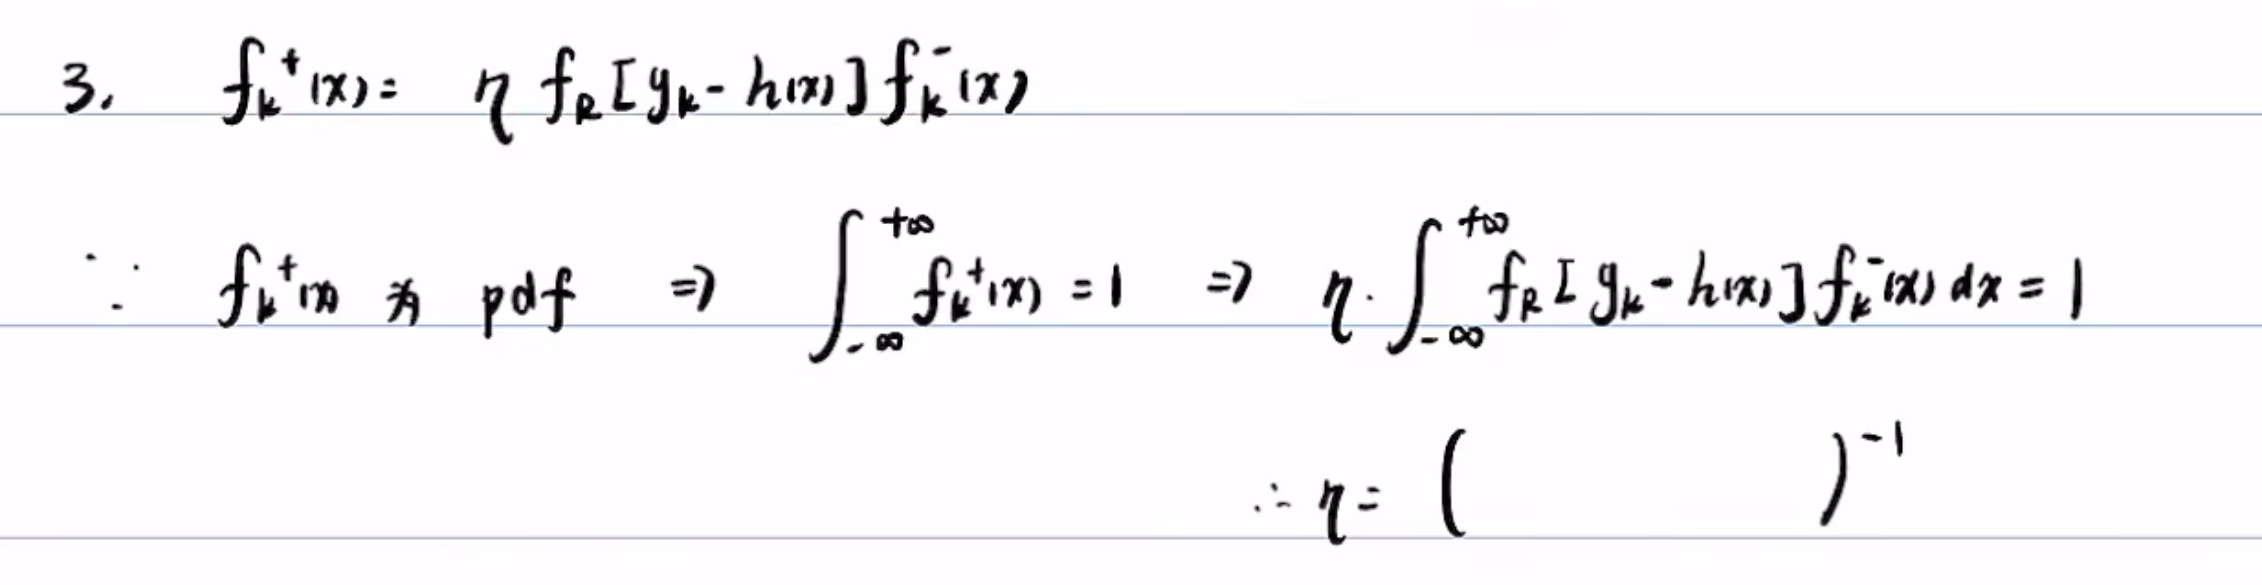 3. f_k^+(x) = η f_R[y_k - h(x)] f_k^-(x)
∵ f_k^+(x) 为 pdf ⇒ ∫_{-∞}^{+∞} f_k^+(x) = 1 ⇒ η · ∫_{-∞}^{+∞} f_R[y_k - h(x)] f_k^-(x) dx = 1
∴ η = ( )^{-1}